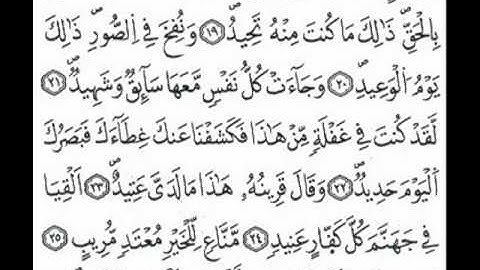 بِالْحَقِّ ۖ ذَٰلِكَ مَا كُنتَ مِنْهُ تَحِيدُ ۝١٩ وَنُفِخَ فِي الصُّورِ ۚ ذَٰلِكَ
يَوْمُ الْوَعِيدِ ۝٢٠ وَجَاءَتْ كُلُّ نَفْسٍ مَّعَهَا سَائِقٌ وَشَهِيدٌ ۝٢١
لَّقَدْ كُنتَ فِي غَفْلَةٍ مِّنْ هَٰذَا فَكَشَفْنَا عَنكَ غِطَاءَكَ فَبَصَرُكَ
الْيَوْمَ حَدِيدٌ ۝٢٢ وَقَالَ قَرِينُهُ هَٰذَا مَا لَدَيَّ عَتِيدٌ ۝٢٣ أَلْقِيَا
فِي جَهَنَّمَ كُلَّ كَفَّارٍ عَنِيدٍ ۝٢٤ مَّنَّاعٍ لِّلْخَيْرِ مُعْتَدٍ مُّرِيبٍ ۝٢٥